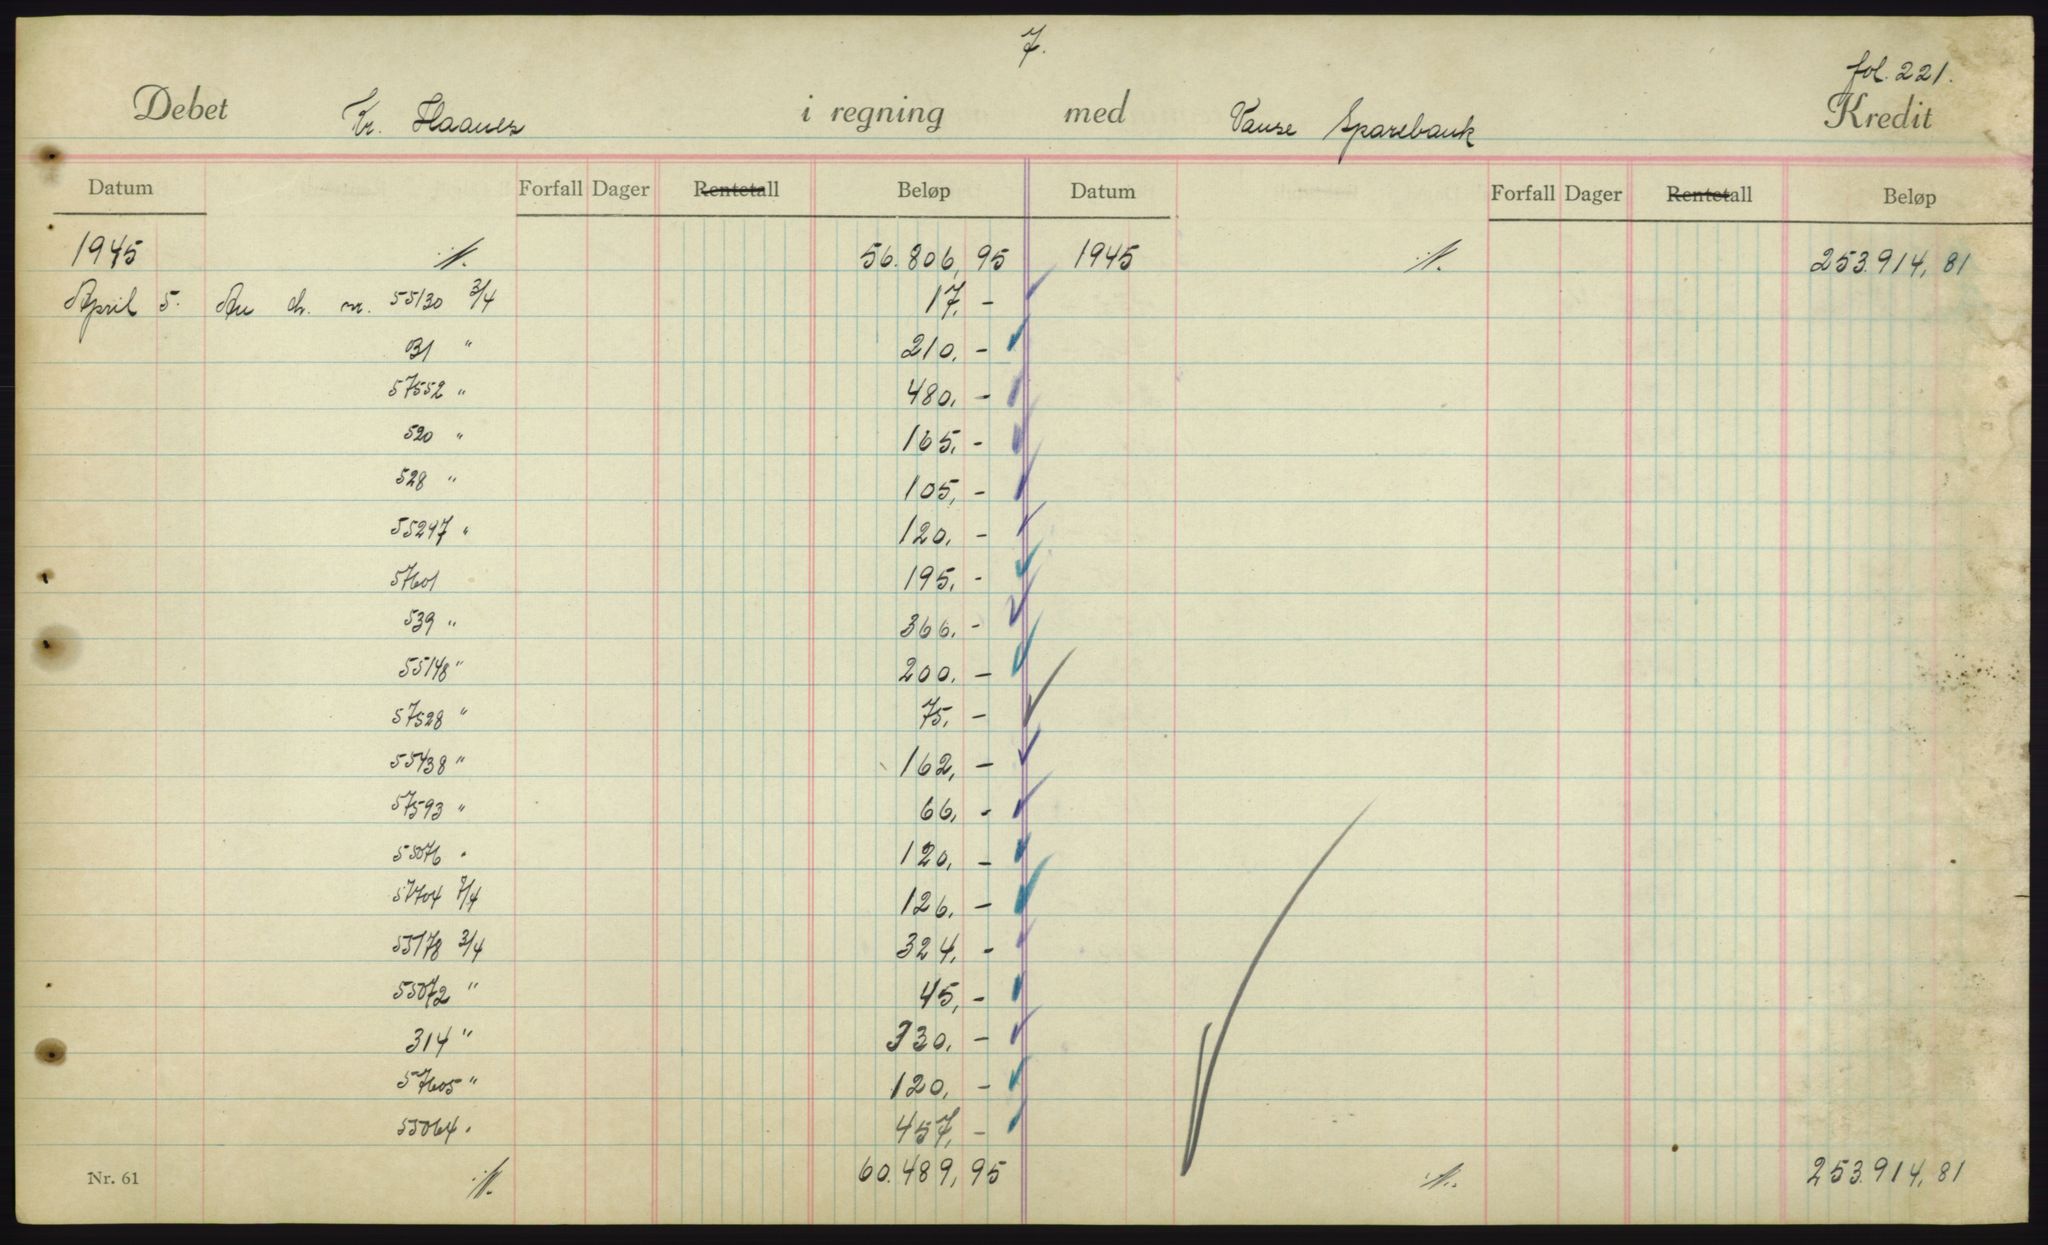 7.
fol. 221.
Debet Kr. Haanes i regning med Vanse Sparebank Kredit
Datum Forfall Dager Rentetall Beløp Datum Forfall Dager Rentetall Beløp
1945 56.806,95 1945 253.914,81
April 5. An ch. nr. 55130 3/4 17,-
31 " 210,-
57552 " 480,-
520 " 165,-
528 " 105,-
55247 " 120,-
57601 195,-
539 " 366,-
55148 " 200,-
57528 " 75,-
55438 " 162,-
57593 " 66,-
55076 " 120,-
57704 7/4 126,-
55178 3/4 324,-
55072 " 45,-
314 " 330,-
57605 " 120,-
55064 " 457,-
Nr. 61 60.489,95 253.914,81